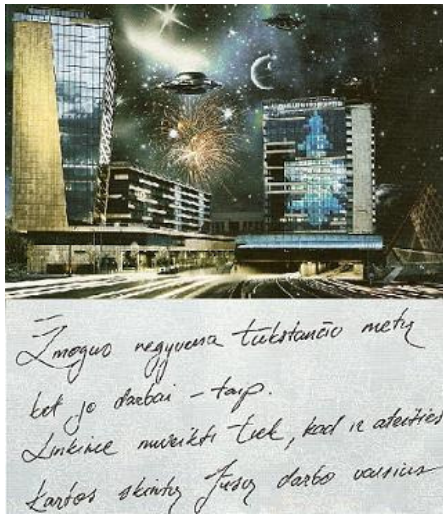 Žmogus negyvena tūkstančio metų
bet jo darbai – taip.
Linkime nuveikti tiek, kad ir ateities
kartos skintų Jūsų darbo vaisius